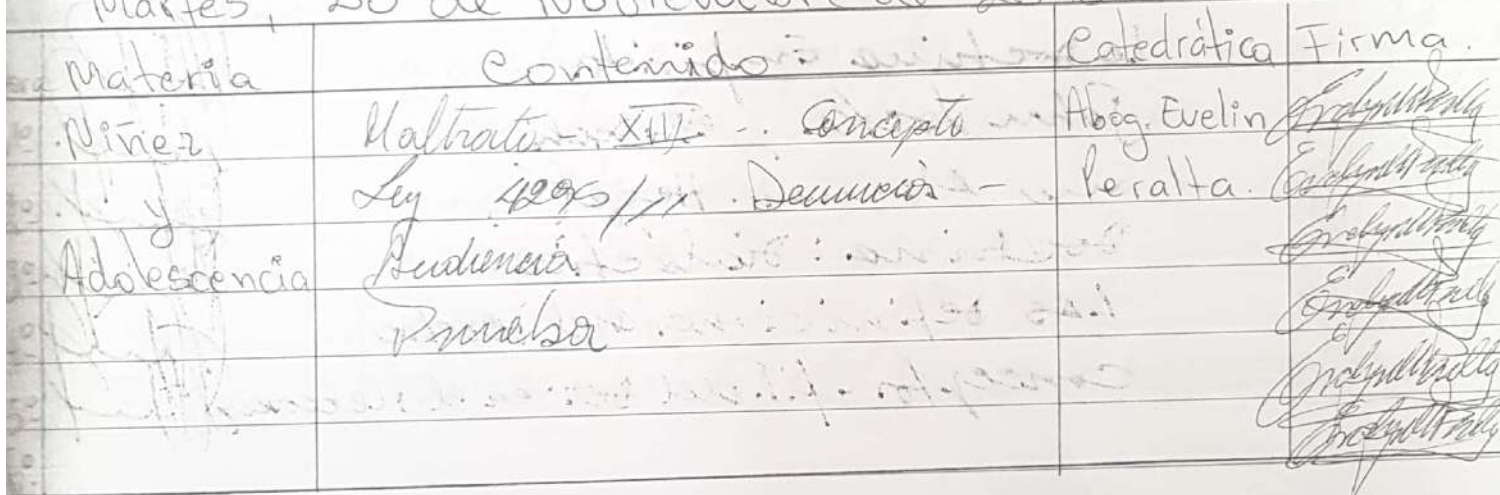 Martes, 20 de Noviembre de
Materia Contenido: Catedrática Firma.
Niñez Maltrato - XIII - Concepto Abog. Evelin
y Ley 4295/11 Denuncia - Peralta.
Adolescencia Audiencia
Prueba